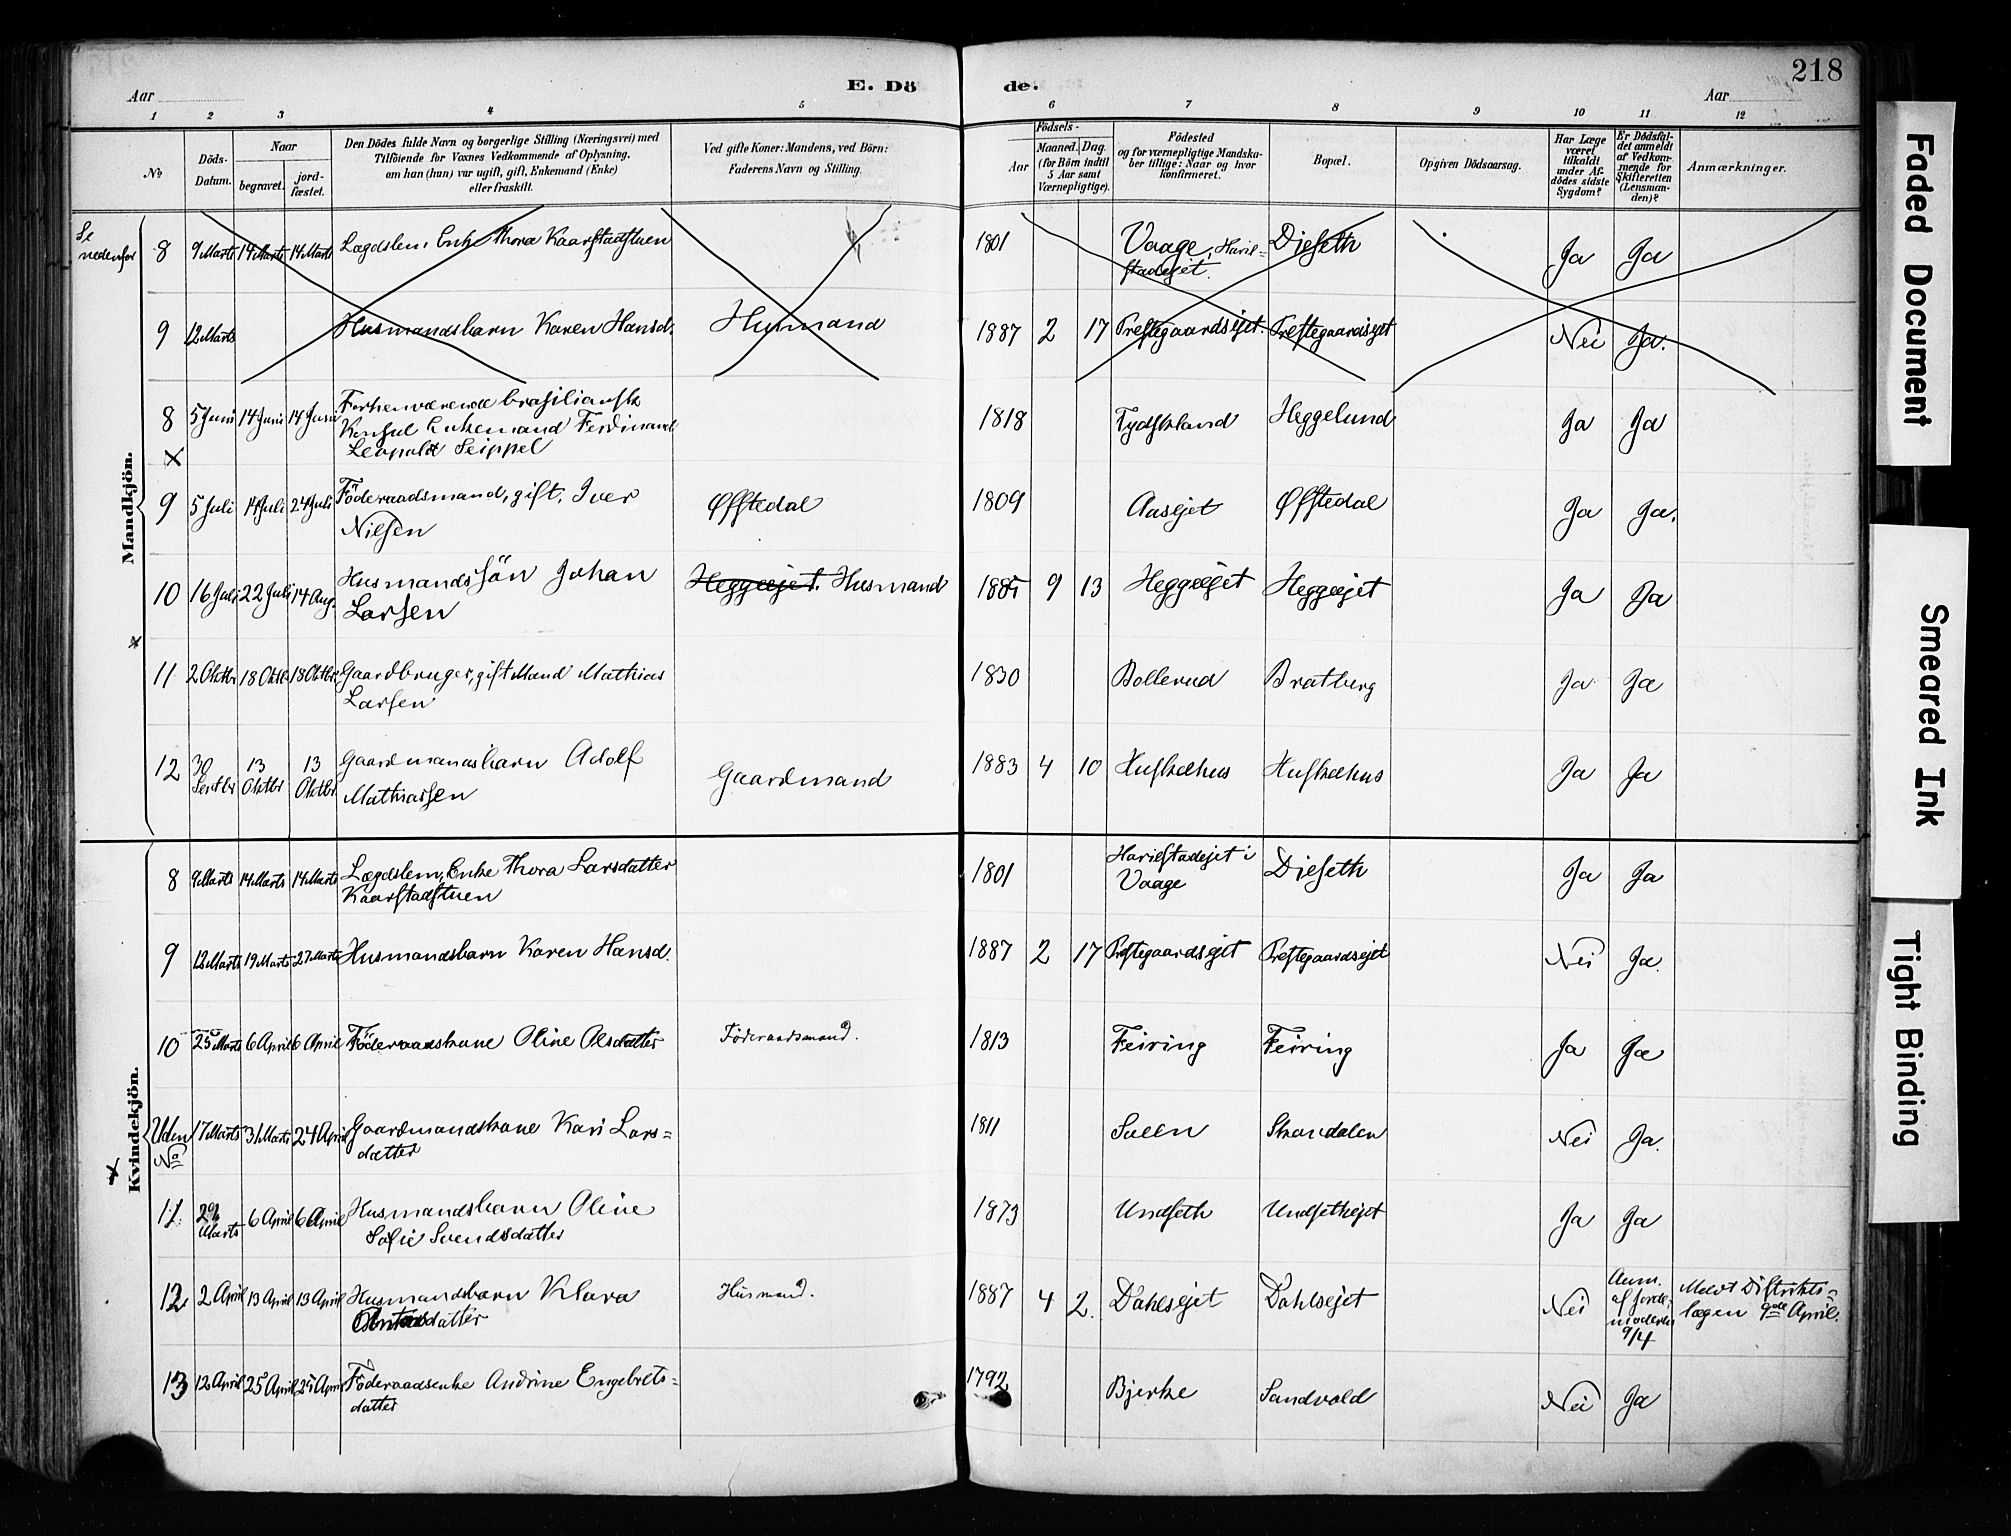 218
E. Döde.
Aar
Aar
1 2 3 4 5 6 7 8 9 10 11 12
No
Döds-Datum.
Naar
begravet.
jord-fæstet.
Den Dödes fulde Navn og borgerlige Stilling (Næringsvei) med
Tilföiende for Voxnes Vedkommende af Oplysning,
om han (hun) var ugift, gift, Enkemand (Enke)
eller fraskilt.
Ved gifte Koner: Mandens, ved Börn:
Faderens Navn og Stilling.
Födsels-
Aar
Maaned.
Dag.
(for Börn indtil
5 Aar samt
Værnepligtige).
Födested
og for værnepligtige Mandska-
ber tillige: Naar og hvor
konfirmeret.
Bopæl.
Opgiven Dödsaarsag.
Har Læge
været
tilkaldt
under Af-
dödes sidste
Sygdom?
Er Dödsfal-
det anmeldt
af Vedkom-
mende for
Skifteretten
(Lensman-
den)?
Anmærkninger.
Mandkjön.
Se nedenfor
8 9 Marts 14 Marts 14 Marts Lægdslem, Enke Thora Kaarstadstuen 1801 Vaage, Haril-
stadejet. Djeseth Ja Ja
9 12 Marts Husmandsbarn Karen Hansd. Husmand 1887 2 17 Prestegaardsejet. Prestegaardsejet Nei Ja.
8 5 Juni 14 Juni 14 Juni Forhenværende brasiliansk
Konsul Enkemand Ferdinand
Leopold Seippel 1818 Tydskland Heggelund Ja Ja
9 5 Juli 14 Juli 24 Juli Föderaadsmand, gift, Iver
Nilsen Øfstedal 1809 Aasejet Øfstedal Ja Ja.
10 16 Juli 22 Juli 14 Aug. Husmandssön Johan
Larsen Heggeejet. Husmand 1885 9 13 Heggeejet Heggeejet Ja Ja
11 2 Oktbr 18 Oktbr 18 Oktbr Gaardbruger, gift Mand Mathias
Larsen 1830 Bollerud Bratberg Ja Ja
12 30 Septbr 13 Oktbr 13 Oktbr Gaardmandsbarn Adolf
Mathiassen Gaardmand 1883 4 10 Huskelhus Huskelhus Ja Ja
Kvindekjön.
8 9 Marts 14 Marts 14 Marts Lægdslem, Enke Thora Larsdatter
Kaarstadstuen 1801 Harilstadejet i
Vaage Djeseth Ja Ja
9 12 Marts 19 Marts 27 Marts Husmandsbarn Karen Hansd. 1887 2 17 Prestegaardsejet Prestegaardsejet Nei Ja.
10 25 Marts 6 April 6 April Föderaadskone Oline Olsdatter Föderaadsmand. 1813 Feiring Feiring Ja Ja
Uden No 17 Marts 31 Marts 24 April Gaardmandskone Kari Lars-
datter 1811 Sueen Skandalen Nei Ja.
11 29 Marts 6 April 6 April Husmandsbarn Oline
Sofie Svendsdatter 1873 Undseth Undsethejet Ja Ja
12 2 April 13 April 13 April Husmandsbarn Klara
Antonsdatter Husmand. 1887 4 2 Dahlsejet Dahlsejet Nei Anm.
af Jorde-
moderen
9/4 Meldt Distrikts-
lægen 9de April.
13 12 April 25 April 25 April Föderaadsenke Andrine Engebrets-
datter 1792 Bjerke Sandvold Nei Ja
Faded Document
Smeared Ink
Tight Binding